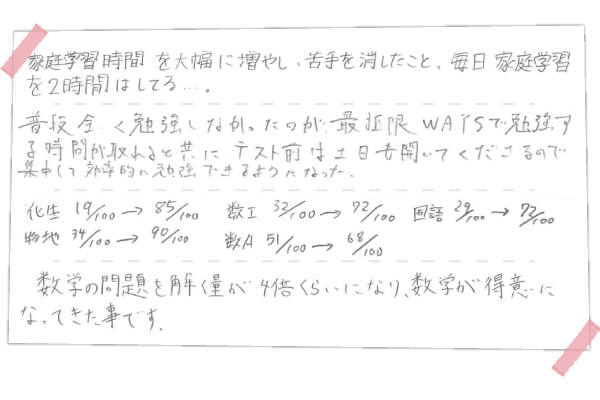 家庭学習時間を大幅に増やし、苦手を消したこと。毎日家庭学習
を2時間はしてる…。
普段全く勉強しなかったのが最低限WAYSで勉強す
る時間が取れると共にテスト前は土日も開いてくださるので
集中して効率的に勉強できるようになった。
化生 19/100→85/100 数I 32/100→72/100 国語 29/100→72/100
物地 34/100→90/100 数A 51/100→68/100
数学の問題を解く量が4倍くらいになり、数学が得意に
なってきた事です。